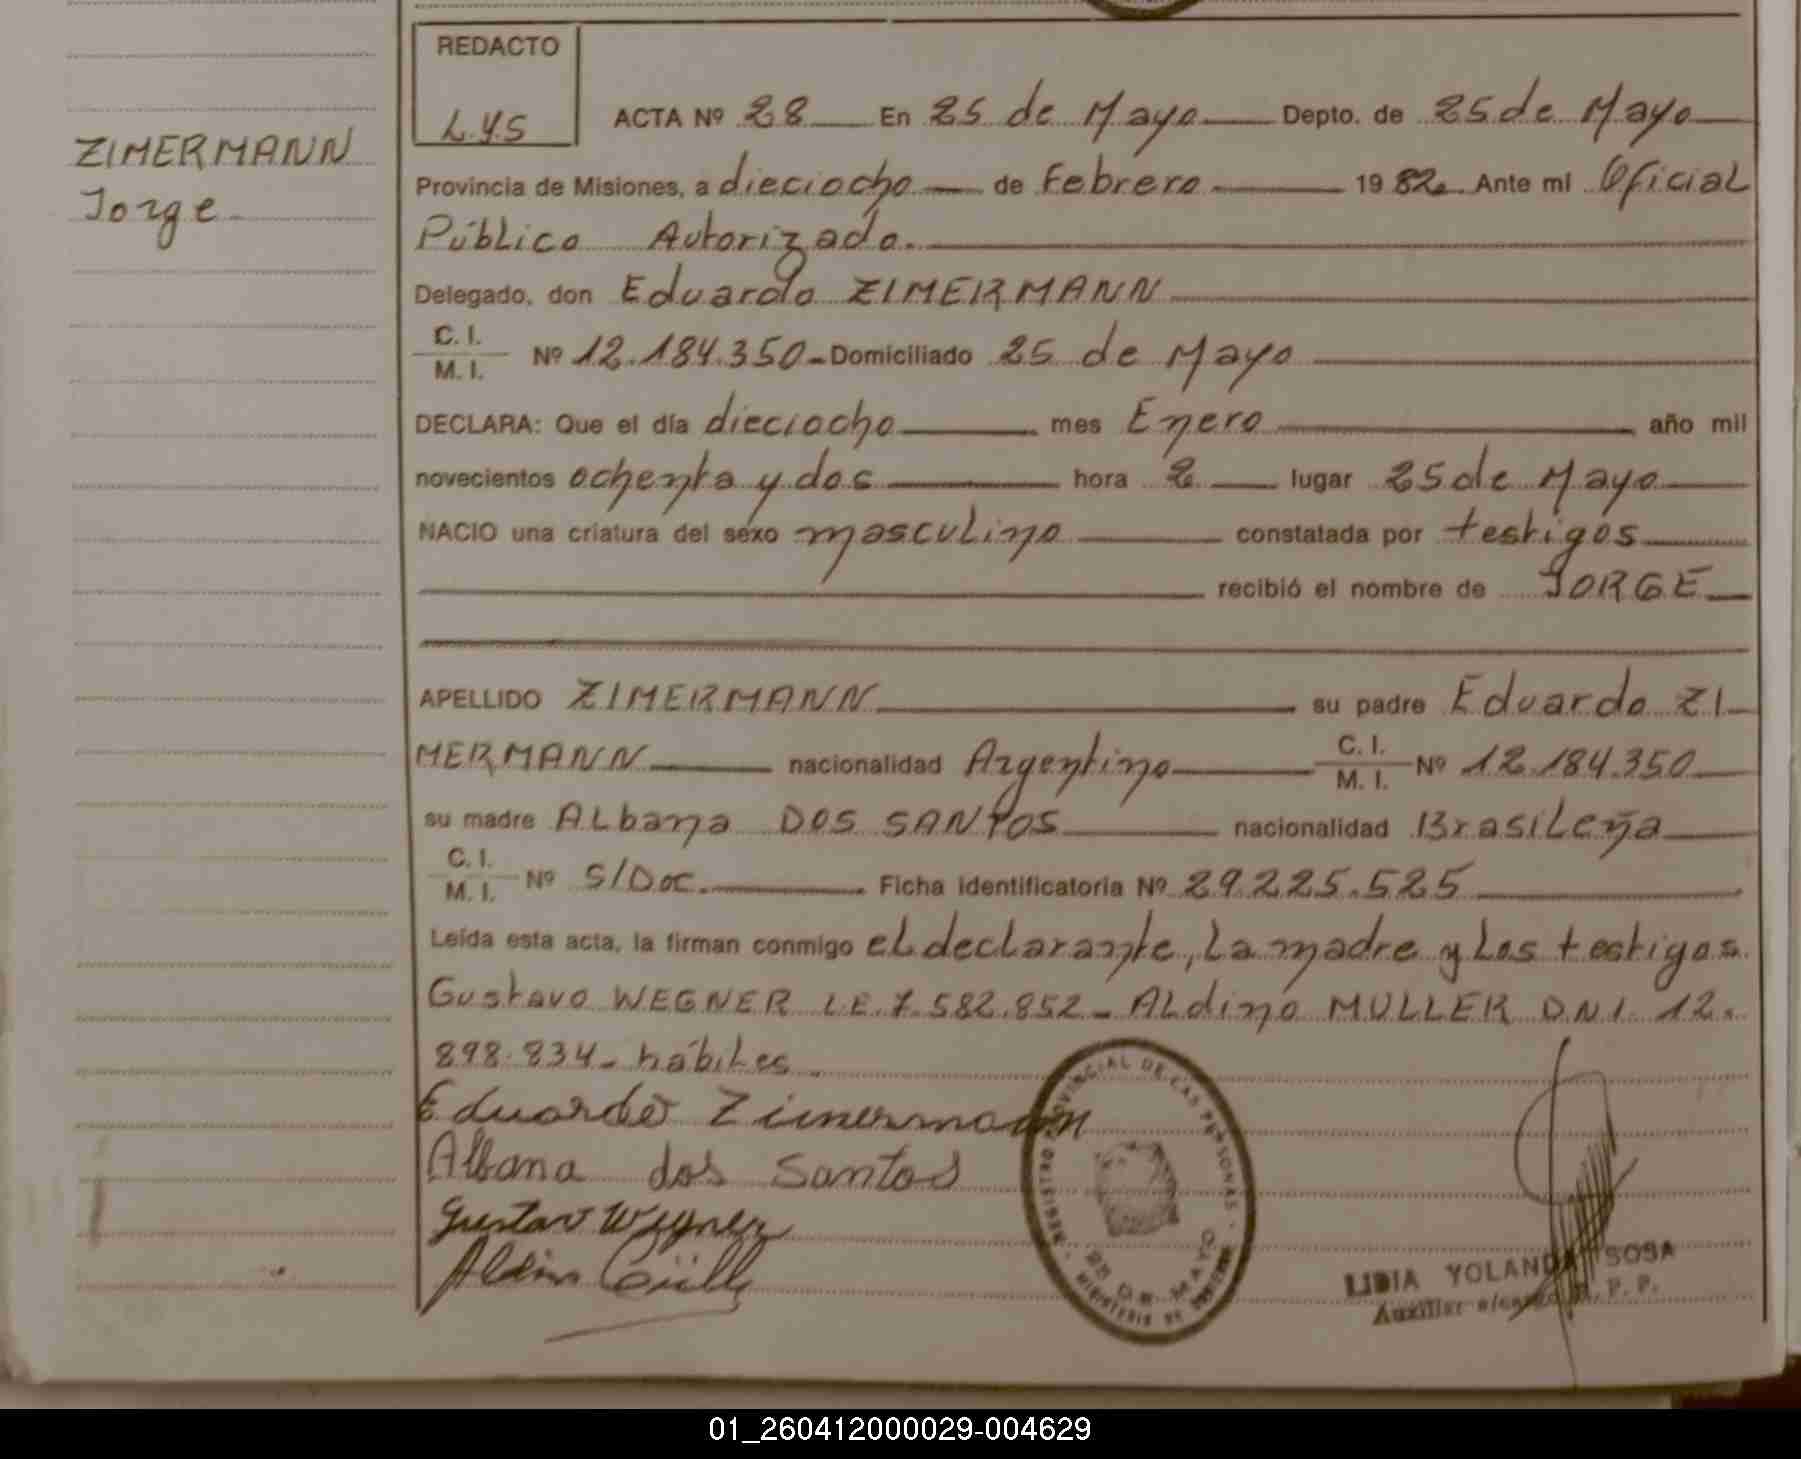 REDACTO
L.Y.S
ZIMERMANN
Jorge
ACTA Nº 28 En 25 de Mayo Depto. de 25 de Mayo
Provincia de Misiones, a dieciocho de Febrero 1982. Ante mi Oficial
Público Autorizado.
Delegado, don Eduardo ZIMERMANN
C. I.
M. I. Nº 12.184.350 - Domiciliado 25 de Mayo
DECLARA: Que el día dieciocho mes Enero año mil
novecientos ochenta y dos hora 2 lugar 25 de Mayo
NACIO una criatura del sexo masculino constatada por testigos
recibió el nombre de JORGE
APELLIDO ZIMERMANN su padre Eduardo ZI
MERMANN nacionalidad Argentino C. I. M. I. Nº 12.184.350
su madre Albana DOS SANTOS nacionalidad Brasileña
C. I.
M. I. Nº S/Doc. Ficha identificatoria Nº 29.225.525
Leída esta acta, la firman conmigo el declarante, la madre y los testigos
Gustavo WEGNER L.E. 7.582.852 - Aldino MULLER D N I 12.
898.834 - hábiles.
Eduardo Zimermann
Albana dos Santos
Gustav Wegner
REGISTRO PROVINCIAL DE LAS PERSONAS
25 DE MAYO
MINISTERIO DE
LIDIA YOLANDA SOSA
Auxiliar
01_260412000029-004629